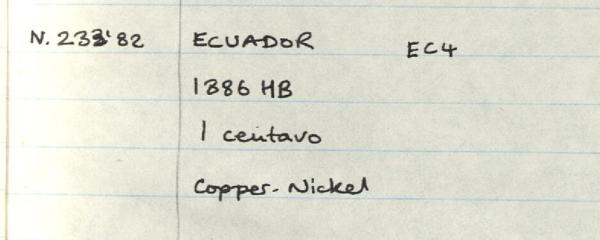 N. 233'82 ECUADOR EC4
1886 HB
1 centavo
Copper-Nickel